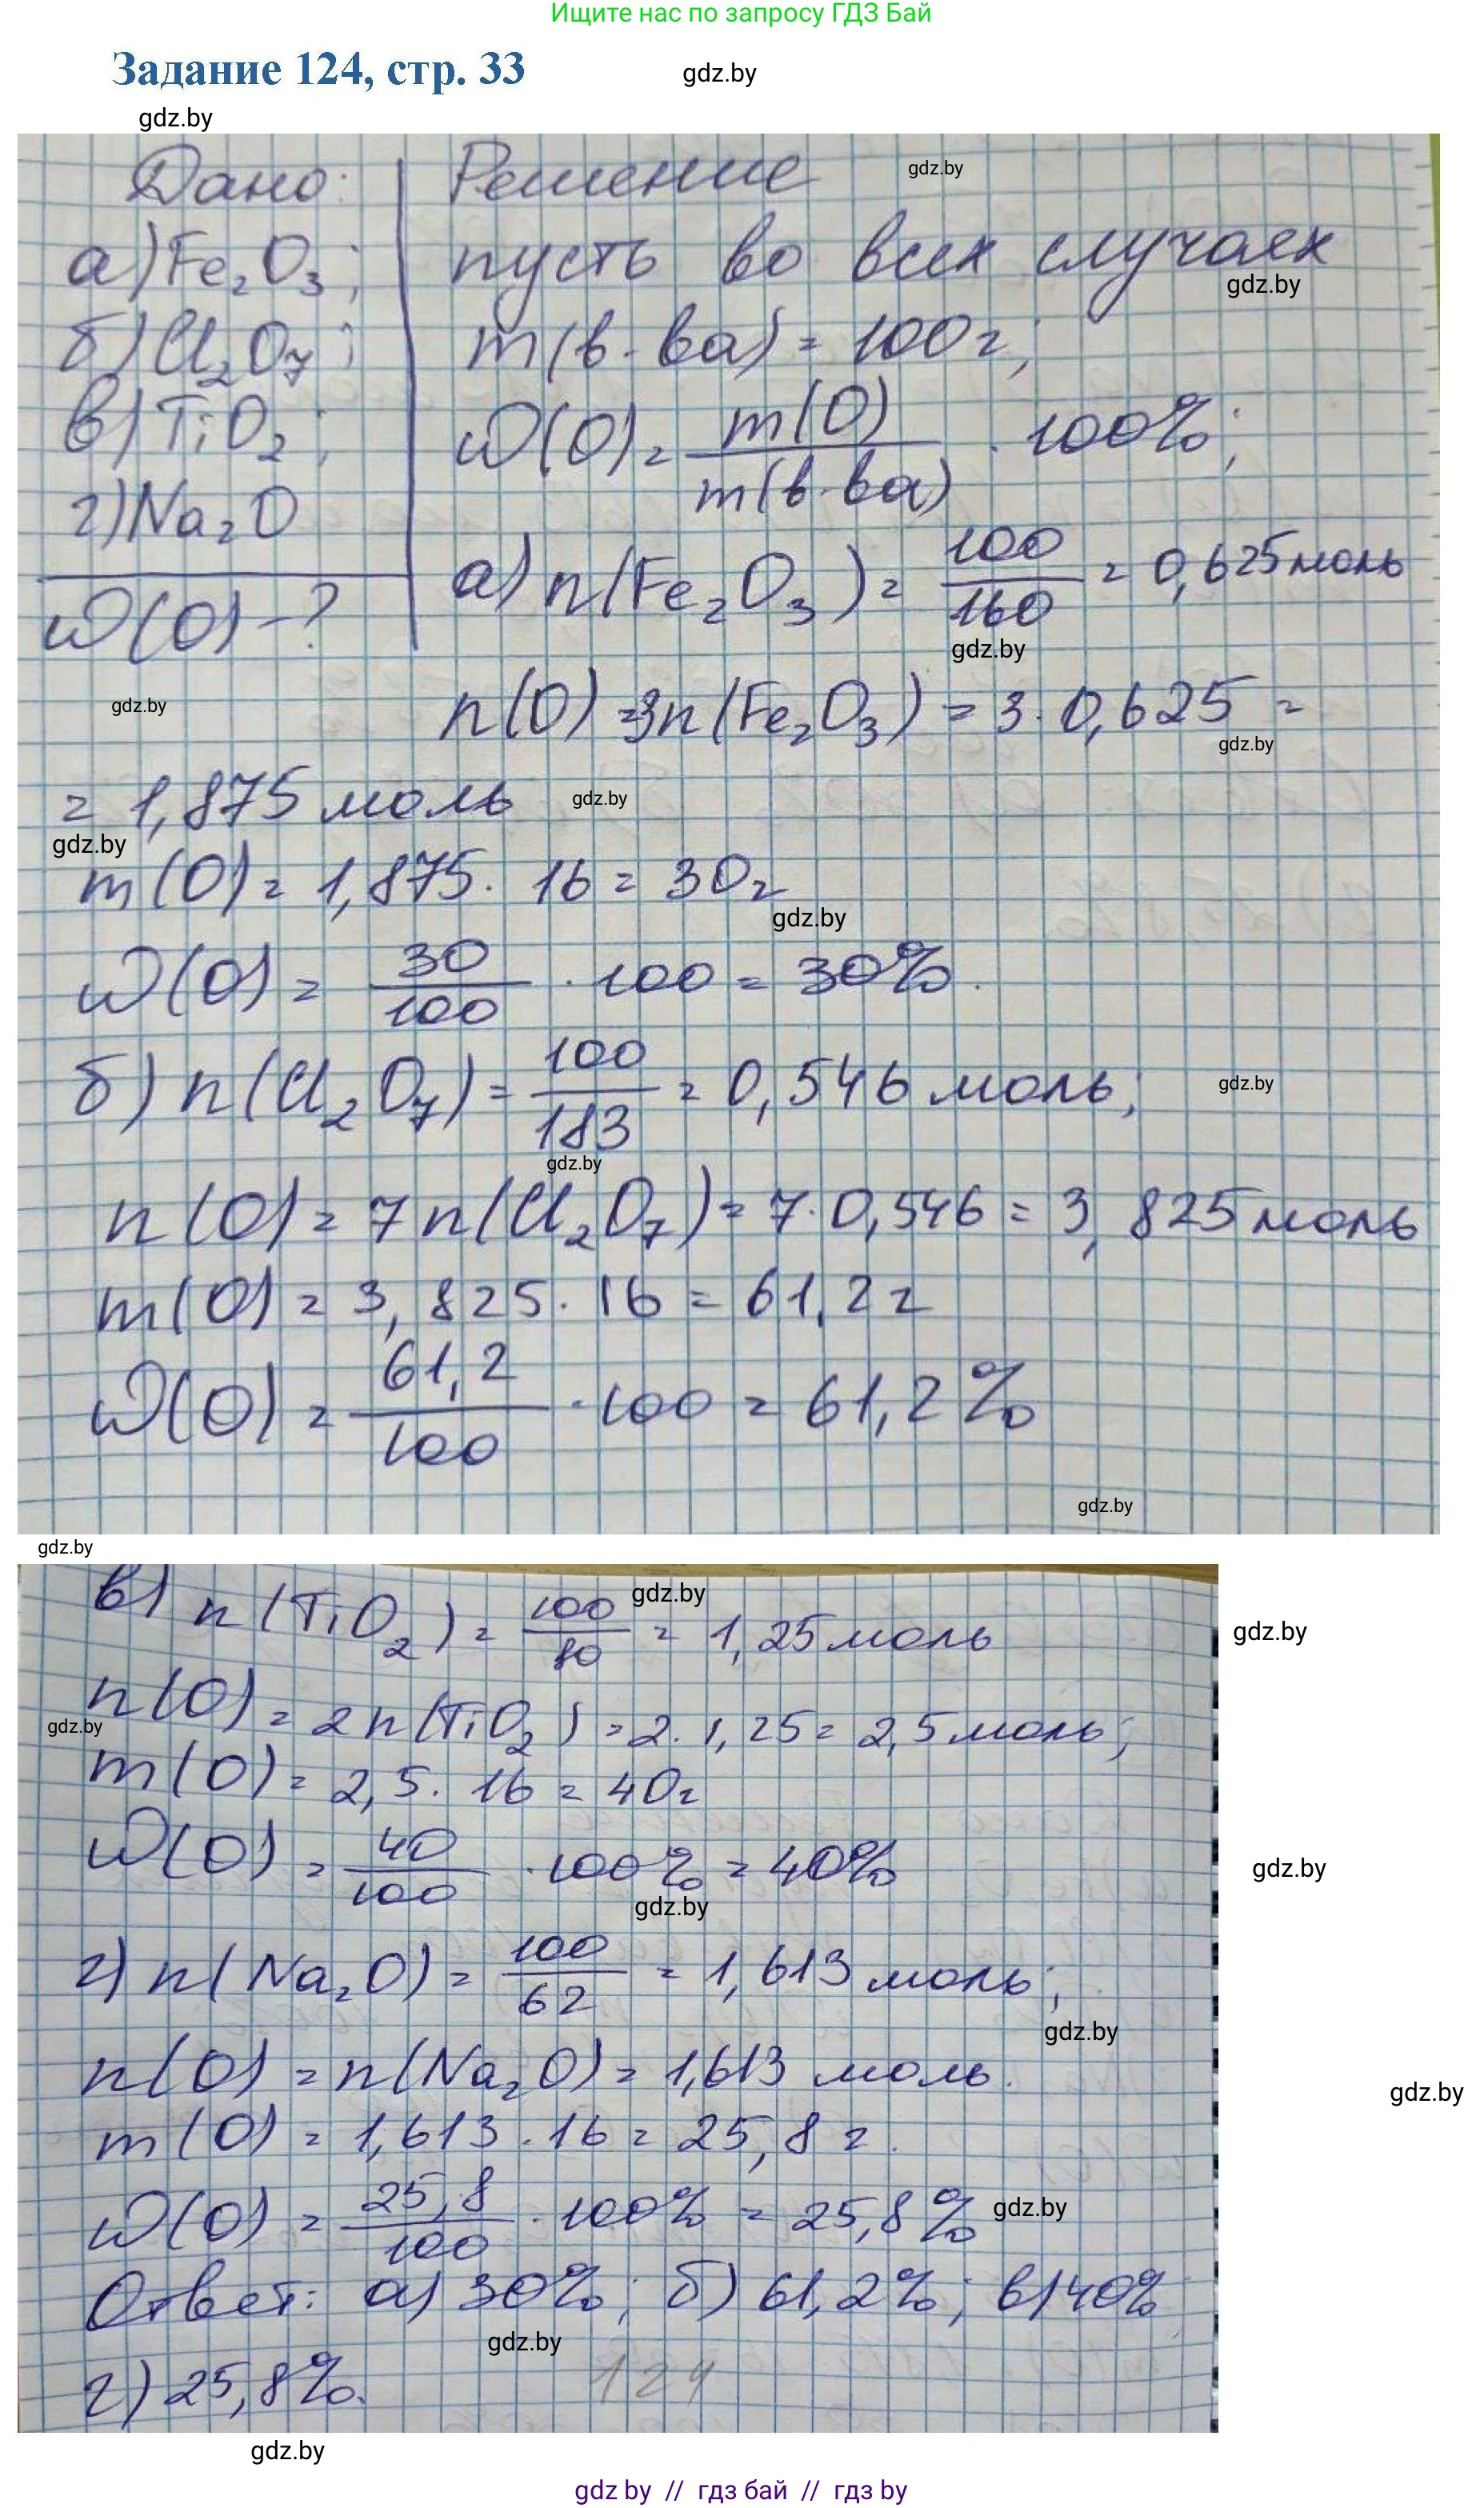 Ищите нас по запросу ГДЗ Бай
Задание 124, стр. 33
gdz.by
gdz.by
Дано: Решение
gdz.by
а) Fe₂O₃; пусть во всех случаях
gdz.by
б) Cl₂O₇; m(в-ва) = 100г;
в) TiO₂; ω(O) = m(O)/m(в-ва) · 100%;
г) Na₂O
а) n(Fe₂O₃) = 100/160 = 0,625 моль
ω(O) - ?
gdz.by
gdz.by
n(O) = 3n(Fe₂O₃) = 3 · 0,625 =
gdz.by
= 1,875 моль
gdz.by
gdz.by
m(O) = 1,875 · 16 = 30г
gdz.by
ω(O) = 30/100 · 100 = 30%.
б) n(Cl₂O₇) = 100/183 = 0,546 моль;
gdz.by
gdz.by
n(O) = 7n(Cl₂O₇) = 7 · 0,546 = 3,825 моль
m(O) = 3,825 · 16 = 61,2 г
ω(O) = 61,2/100 · 100 = 61,2%
gdz.by
gdz.by
в) n(TiO₂) = 100/80 = 1,25 моль
gdz.by
gdz.by
n(O) = 2n(TiO₂) = 2 · 1,25 = 2,5 моль;
gdz.by
m(O) = 2,5 · 16 = 40г
ω(O) = 40/100 · 100% = 40%
gdz.by
gdz.by
г) n(Na₂O) = 100/62 = 1,613 моль;
gdz.by
n(O) = n(Na₂O) = 1,613 моль.
gdz.by
m(O) = 1,613 · 16 = 25,8 г.
ω(O) = 25,8/100 · 100% = 25,8%
gdz.by
Ответ: а) 30%; б) 61,2%; в) 40%
gdz.by
г) 25,8%.
124
gdz.by
gdz by // гдз бай // гдз by